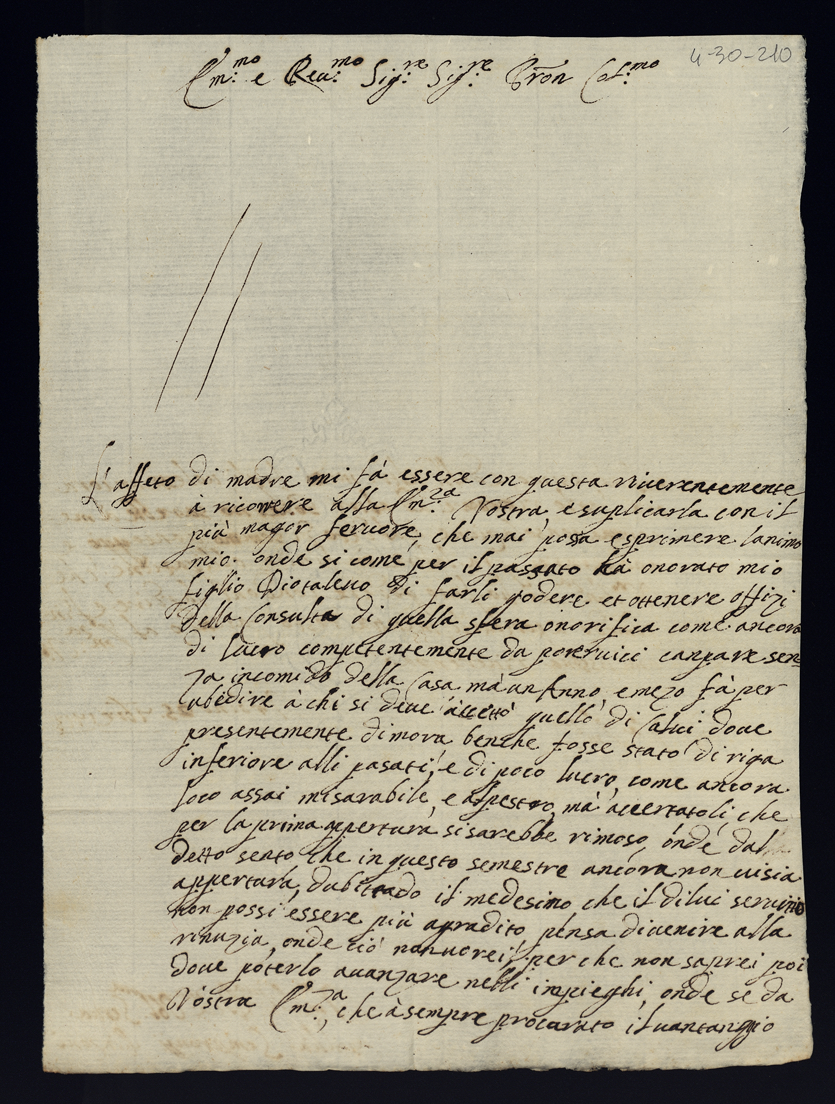 4-30-210
Em:mo e Reu:mo Sig:re Sig:re Pron Col:mo
L'affeto di madre mi fà essere con questa riuerentemente
à ricorrere alla Em:za Vostra, e suplicarla con il
più magior feruore, che mai possa esprimere lanimo
mio. onde si come per il passato hà onorato mio
figlio Diotaleuo di farli godere et ottenere offizi
della Consulta di quella sfera onorifica come ancora
di lucro competentemente da poteruici canpare sen=
za incomido della Casa, mà un Anno, e mezo fà per
ubedire à chi si deue accettò quello di Calui doue
presentemente dimora benche fosse stato di riga
inferiore alli pasati, e di poco lucro, come ancora
loco assai misarabile, e alpestro, mà accertatoli, che
per la prima appertura si sarebbe rimoso, onde dal
detto sento che in questo semestre ancora non uisia
appertura, dubittado il medesimo che il dilui seruizio
non possi essere più agradito pensa diuenire alla
rinuzia, onde ciò nanuorei, per che non saprei poi
doue poterlo auanzare nelli impieghi, onde se da
Vostra Em:za, che à sempre procurato il uantanggio